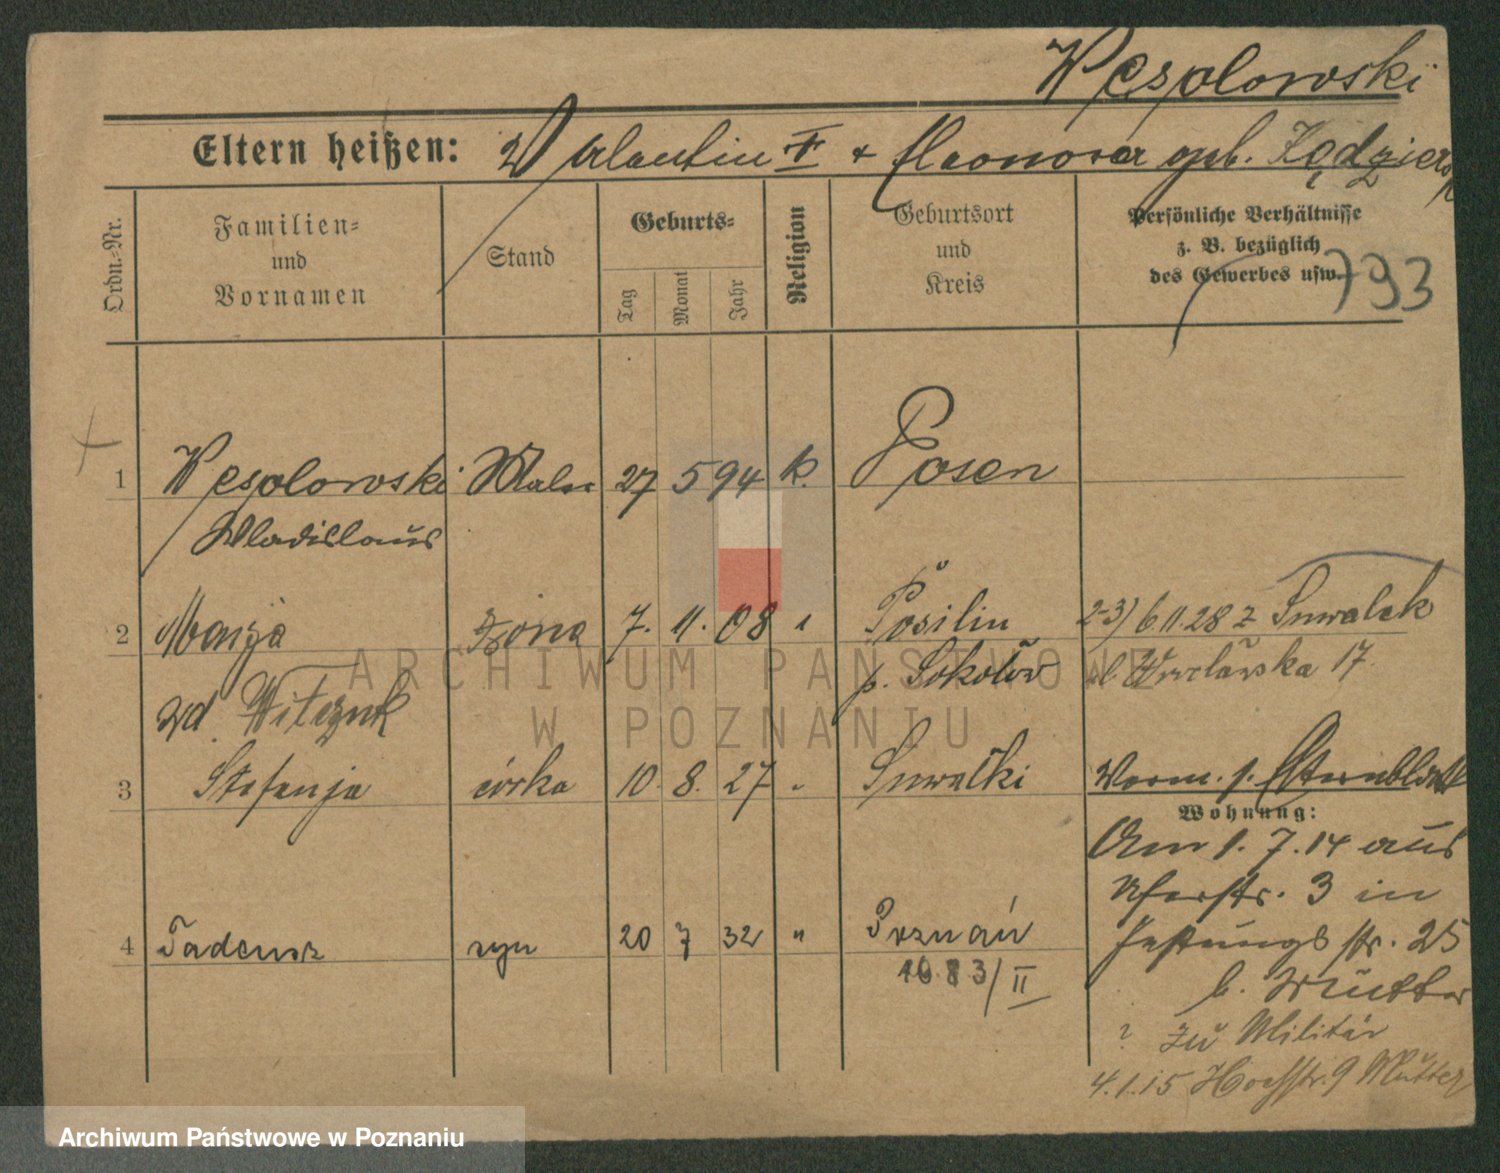 Wesolowski
Eltern heißen: Valentin † + Eleonora geb.
Ordn.-Nr.
Familien-
und
Vornamen
Stand
Geburts-
Tag
Monat
Jahr
Religion
Geburtsort
und
Kreis
Persönliche Verhältnisse
z. B. bezüglich
des Gewerbes usw.
793
1 Wesolowski Maler 27 5 94 k. Posen
Wladislaus
2 Marja żona 7. 11. 08 " Posilin 2-3) 6.11.28 z Suwałek
p. Sokołów ul. Wrocławska 17
zd. Witczuk
3 Stefanja córka 10. 8. 27 " Suwałki
Worm. s.
Wohnung:
Am 1. 7. 14 aus
Uferstr. 3 in
Festungsstr. 25
b. Mutter
4 Tadeusz syn 20 7 32 " Poznań
1083/II
? zu Militär
4.1.15 Hochstr. 9 Mutter
ARCHIWUM PAŃSTWOWE
W POZNANIU
Archiwum Państwowe w Poznaniu